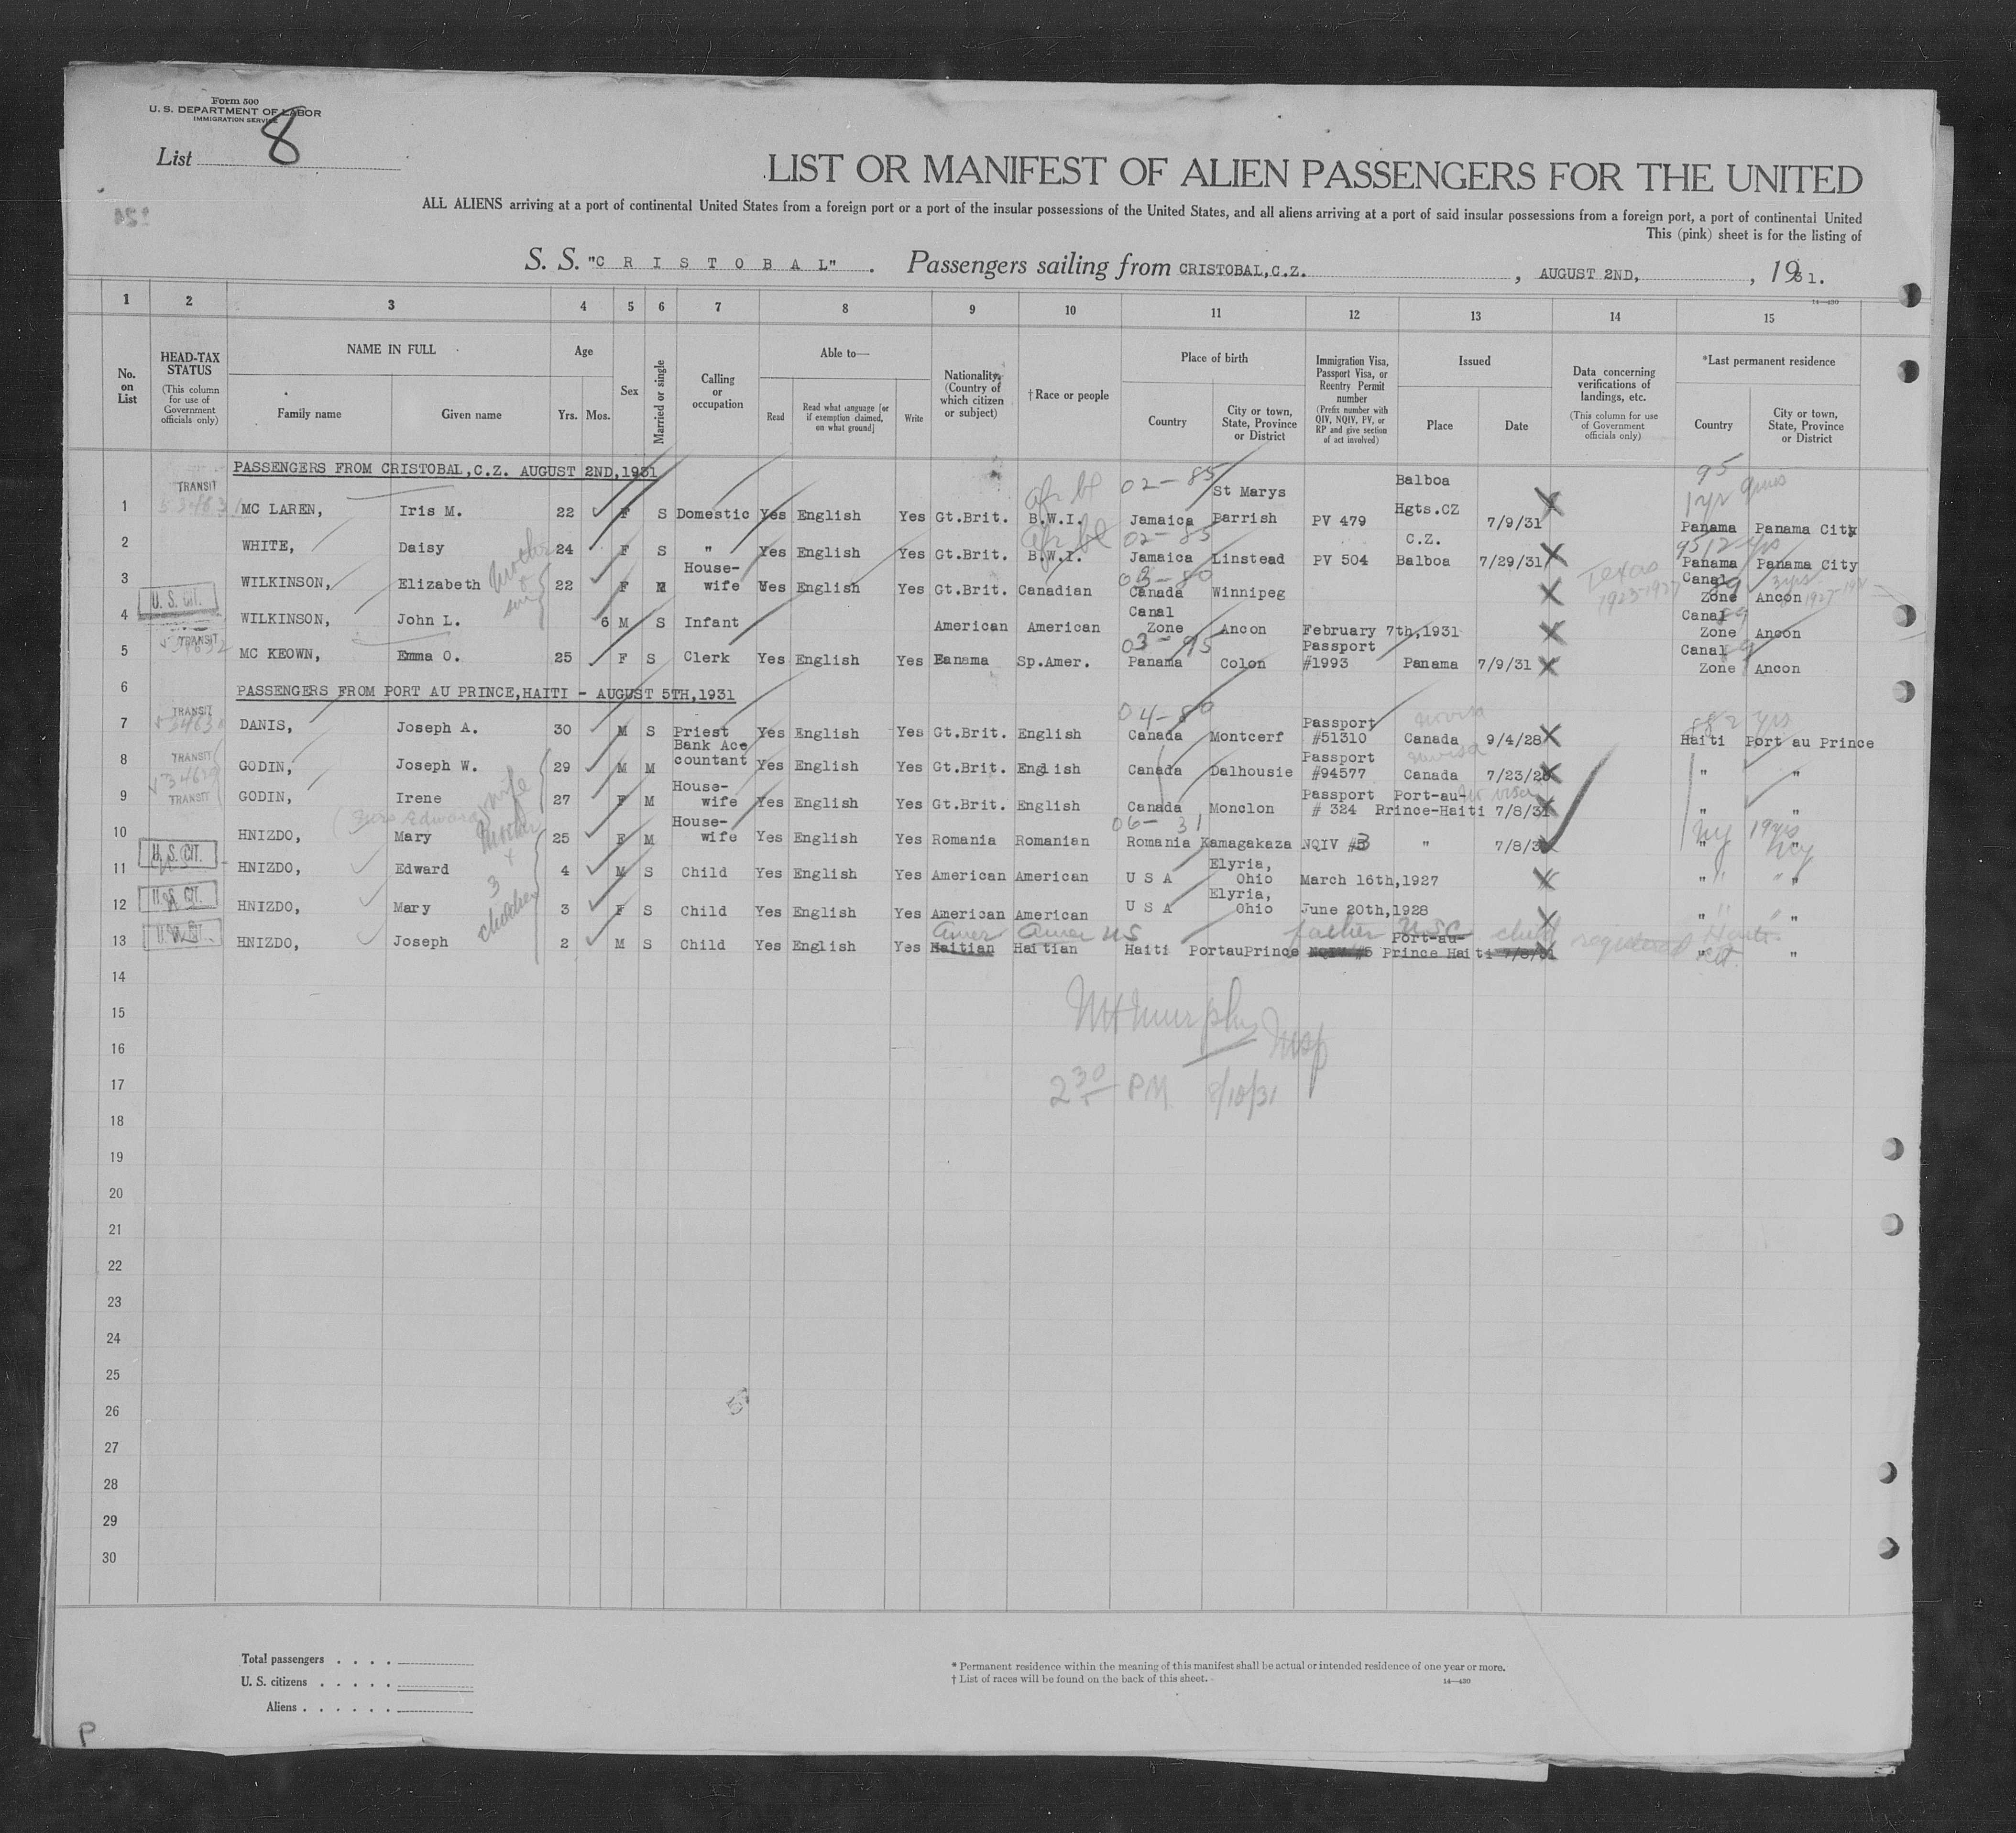 Form 500
U. S. DEPARTMENT OF LABOR
IMMIGRATION SERVICE
List 8
LIST OR MANIFEST OF ALIEN PASSENGERS FOR THE UNITED
ALL ALIENS arriving at a port of continental United States from a foreign port or a port of the insular possessions of the United States, and all aliens arriving at a port of said insular possessions from a foreign port, a port of continental United
This (pink) sheet is for the listing of
S. S. "C R I S T O B A L" . Passengers sailing from CRISTOBAL,C.Z. , AUGUST 2ND, , 1931.
14—430
1 2 3 4 5 6 7 8 9 10 11 12 13 14 15
No. on List
HEAD-TAX STATUS
(This column for use of Government officials only)
NAME IN FULL
Family name Given name
Age
Yrs. Mos.
Sex
Married or single
Calling or occupation
Able to—
Read Read what language [or if exemption claimed, on what ground] Write
Nationality. (Country of which citizen or subject)
†Race or people
Place of birth
Country City or town, State, Province or District
Immigration Visa, Passport Visa, or Reentry Permit number
(Prefix number with QIV, NQIV, PV, or RP and give section of act involved)
Issued
Place Date
Data concerning verifications of landings, etc.
(This column for use of Government officials only)
*Last permanent residence
Country City or town, State, Province or District
PASSENGERS FROM CRISTOBAL,C.Z. AUGUST 2ND,1931
afr bl 02-85 95 1 yr 9 mos
1 TRANSIT MC LAREN, Iris M. 22 F S Domestic Yes English Yes Gt.Brit. B.W.I. Jamaica St Marys Parrish PV 479 Balboa Hgts.CZ 7/9/31 Panama Panama City
afr bl 02-85 95 2 yrs
2 WHITE, Daisy 24 F S " Yes English Yes Gt.Brit. B.W.I. Jamaica Linstead PV 504 C.Z. Balboa 7/29/31 Panama Panama City
mother + son 03-80 Texas 1923-1927 89 3 yrs
3 WILKINSON, Elizabeth 22 F M House-wife Yes English Yes Gt.Brit. Canadian Canada Winnipeg Canal Zone Ancon
4 U. S. CIT. WILKINSON, John L. 6 M S Infant American American Canal Zone Ancon February 7th,1931 Canal Zone Ancon
03-95
5 TRANSIT MC KEOWN, Emma O. 25 F S Clerk Yes English Yes Panama Sp.Amer. Panama Colon Passport #1993 Panama 7/9/31 Canal Zone Ancon
6 PASSENGERS FROM PORT AU PRINCE,HAITI - AUGUST 5TH,1931
04-80 no visa 88 2 yrs
7 TRANSIT DANIS, Joseph A. 30 M S Priest Yes English Yes Gt.Brit. English Canada Montcerf Passport #51310 Canada 9/4/28 Haiti Port au Prince
8 TRANSIT GODIN, Joseph W. 29 M M Bank Accountant Yes English Yes Gt.Brit. English Canada Dalhousie Passport #94577 Canada 7/23/28 " "
wife no visa
9 TRANSIT GODIN, Irene 27 F M House-wife Yes English Yes Gt.Brit. English Canada Monclon Passport # 324 Port-au-Prince-Haiti 7/8/31 " "
mother + 3 children 06-31
10 HNIZDO, Mary 25 F M House-wife Yes English Yes Romania Romanian Romania Kamagakaza NQIV #3 " 7/8/31 " "
11 U. S. CIT. HNIZDO, Edward 4 M S Child Yes English Yes American American U S A Elyria, Ohio March 16th,1927 " "
12 U. S. CIT. HNIZDO, Mary 3 F S Child Yes English Yes American American U S A Elyria, Ohio June 20th,1928 " "
Amer Amer US father USC child registered Haiti
13 U. S. CIT. HNIZDO, Joseph 2 M S Child Yes English Yes Haitian Haitian Haiti PortauPrince NQIV #5 Port-au-Prince Haiti 7/8/31 " "
14
15
Murphy Insp
16
17
2 30 PM 8/10/31
18
19
20
21
22
23
24
25
26
27
28
29
30
Total passengers . . . .
U. S. citizens . . . . .
Aliens . . . . . .
* Permanent residence within the meaning of this manifest shall be actual or intended residence of one year or more.
† List of races will be found on the back of this sheet.
14—430
P